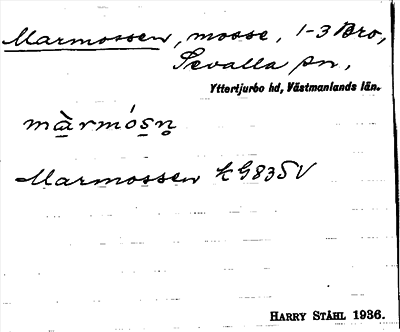 Marmossen, mosse, 1-3 Bro,
Sevalla sn,
Yttertjurbo hd, Västmanlands län.
màrmósn̥
Marmossen k G835 V
HARRY STÅHL 1936.